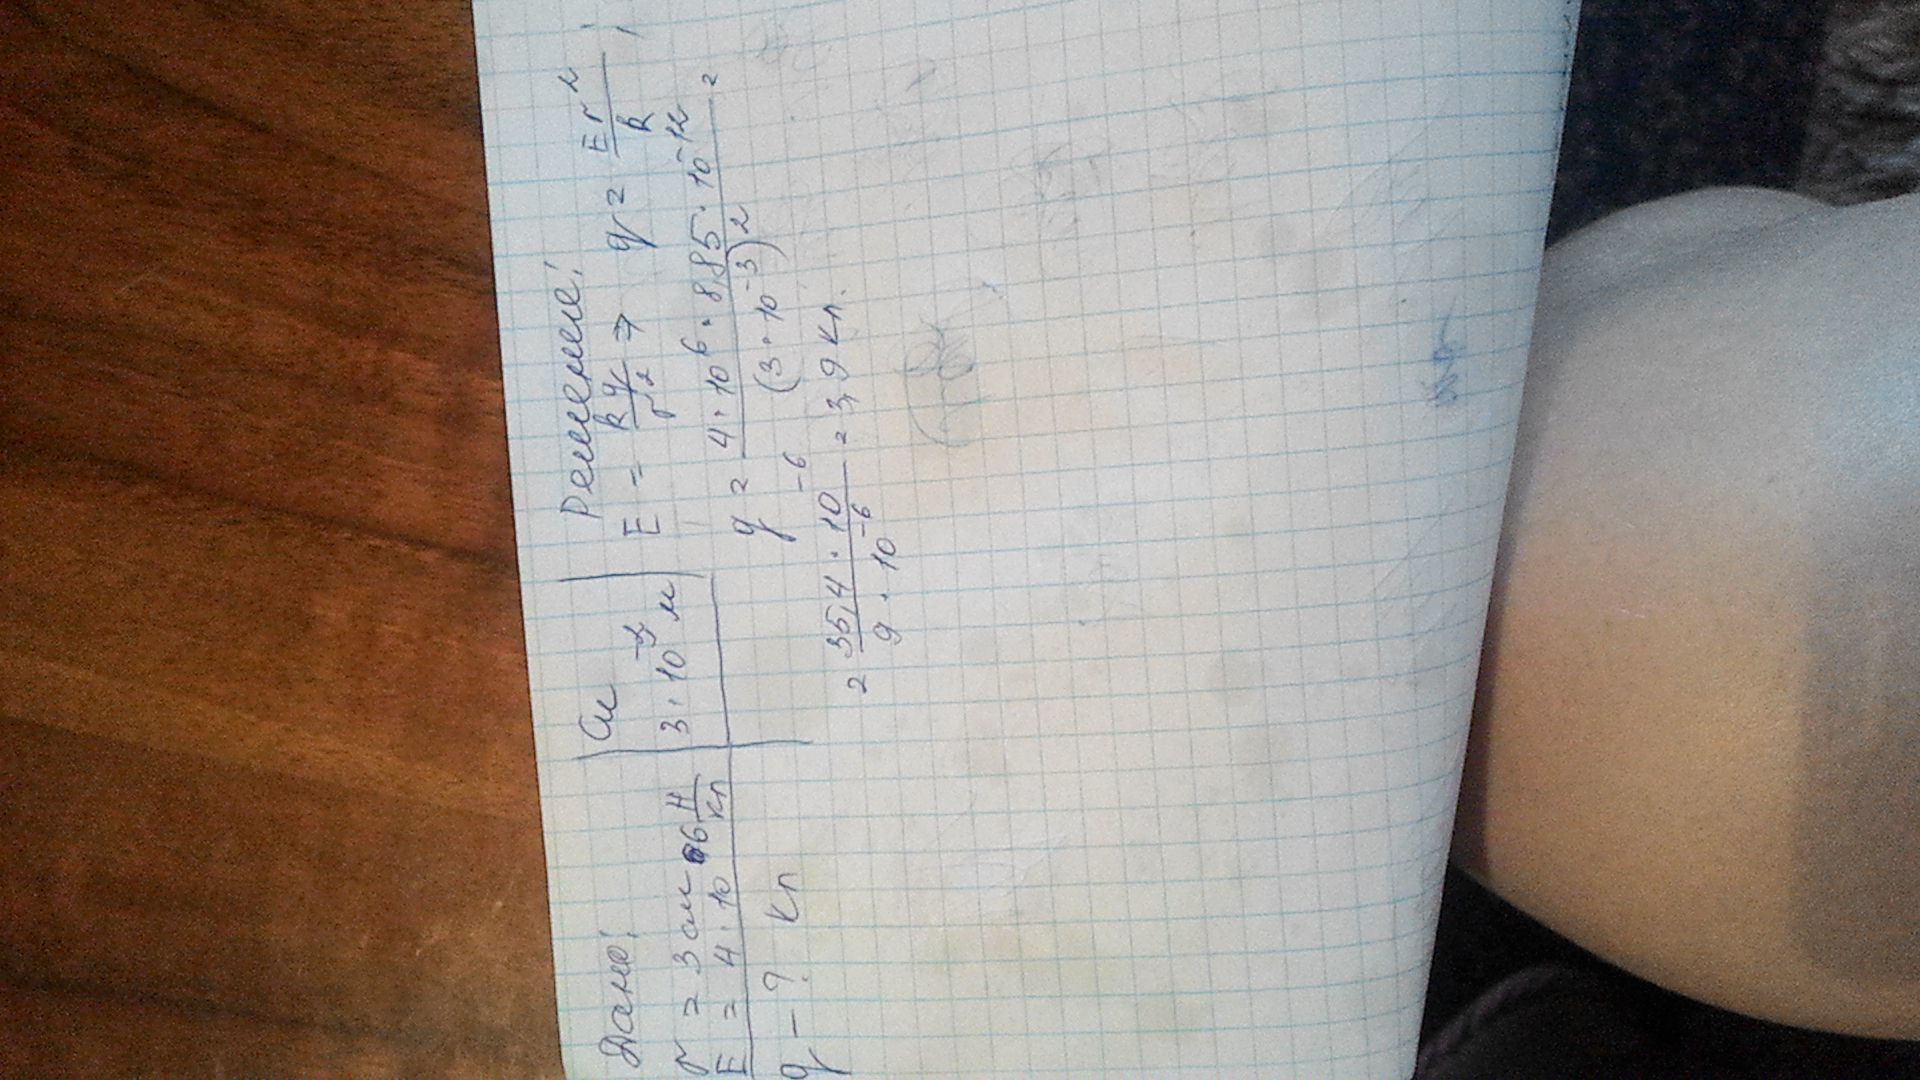 Дано:
r = 3 см
E = 4 · 10^6 Н/Кл
q - ? Кл
Си
3 · 10^-3 м
Решение:
E = kq/r^2 ⇒ q = Er^2/k ;
q = 4 · 10^6 · 8,85 · 10^-12 / (3 · 10^-3)^2 =
= 35,4 · 10^-6 / 9 · 10^-6 = 3,9 Кл.